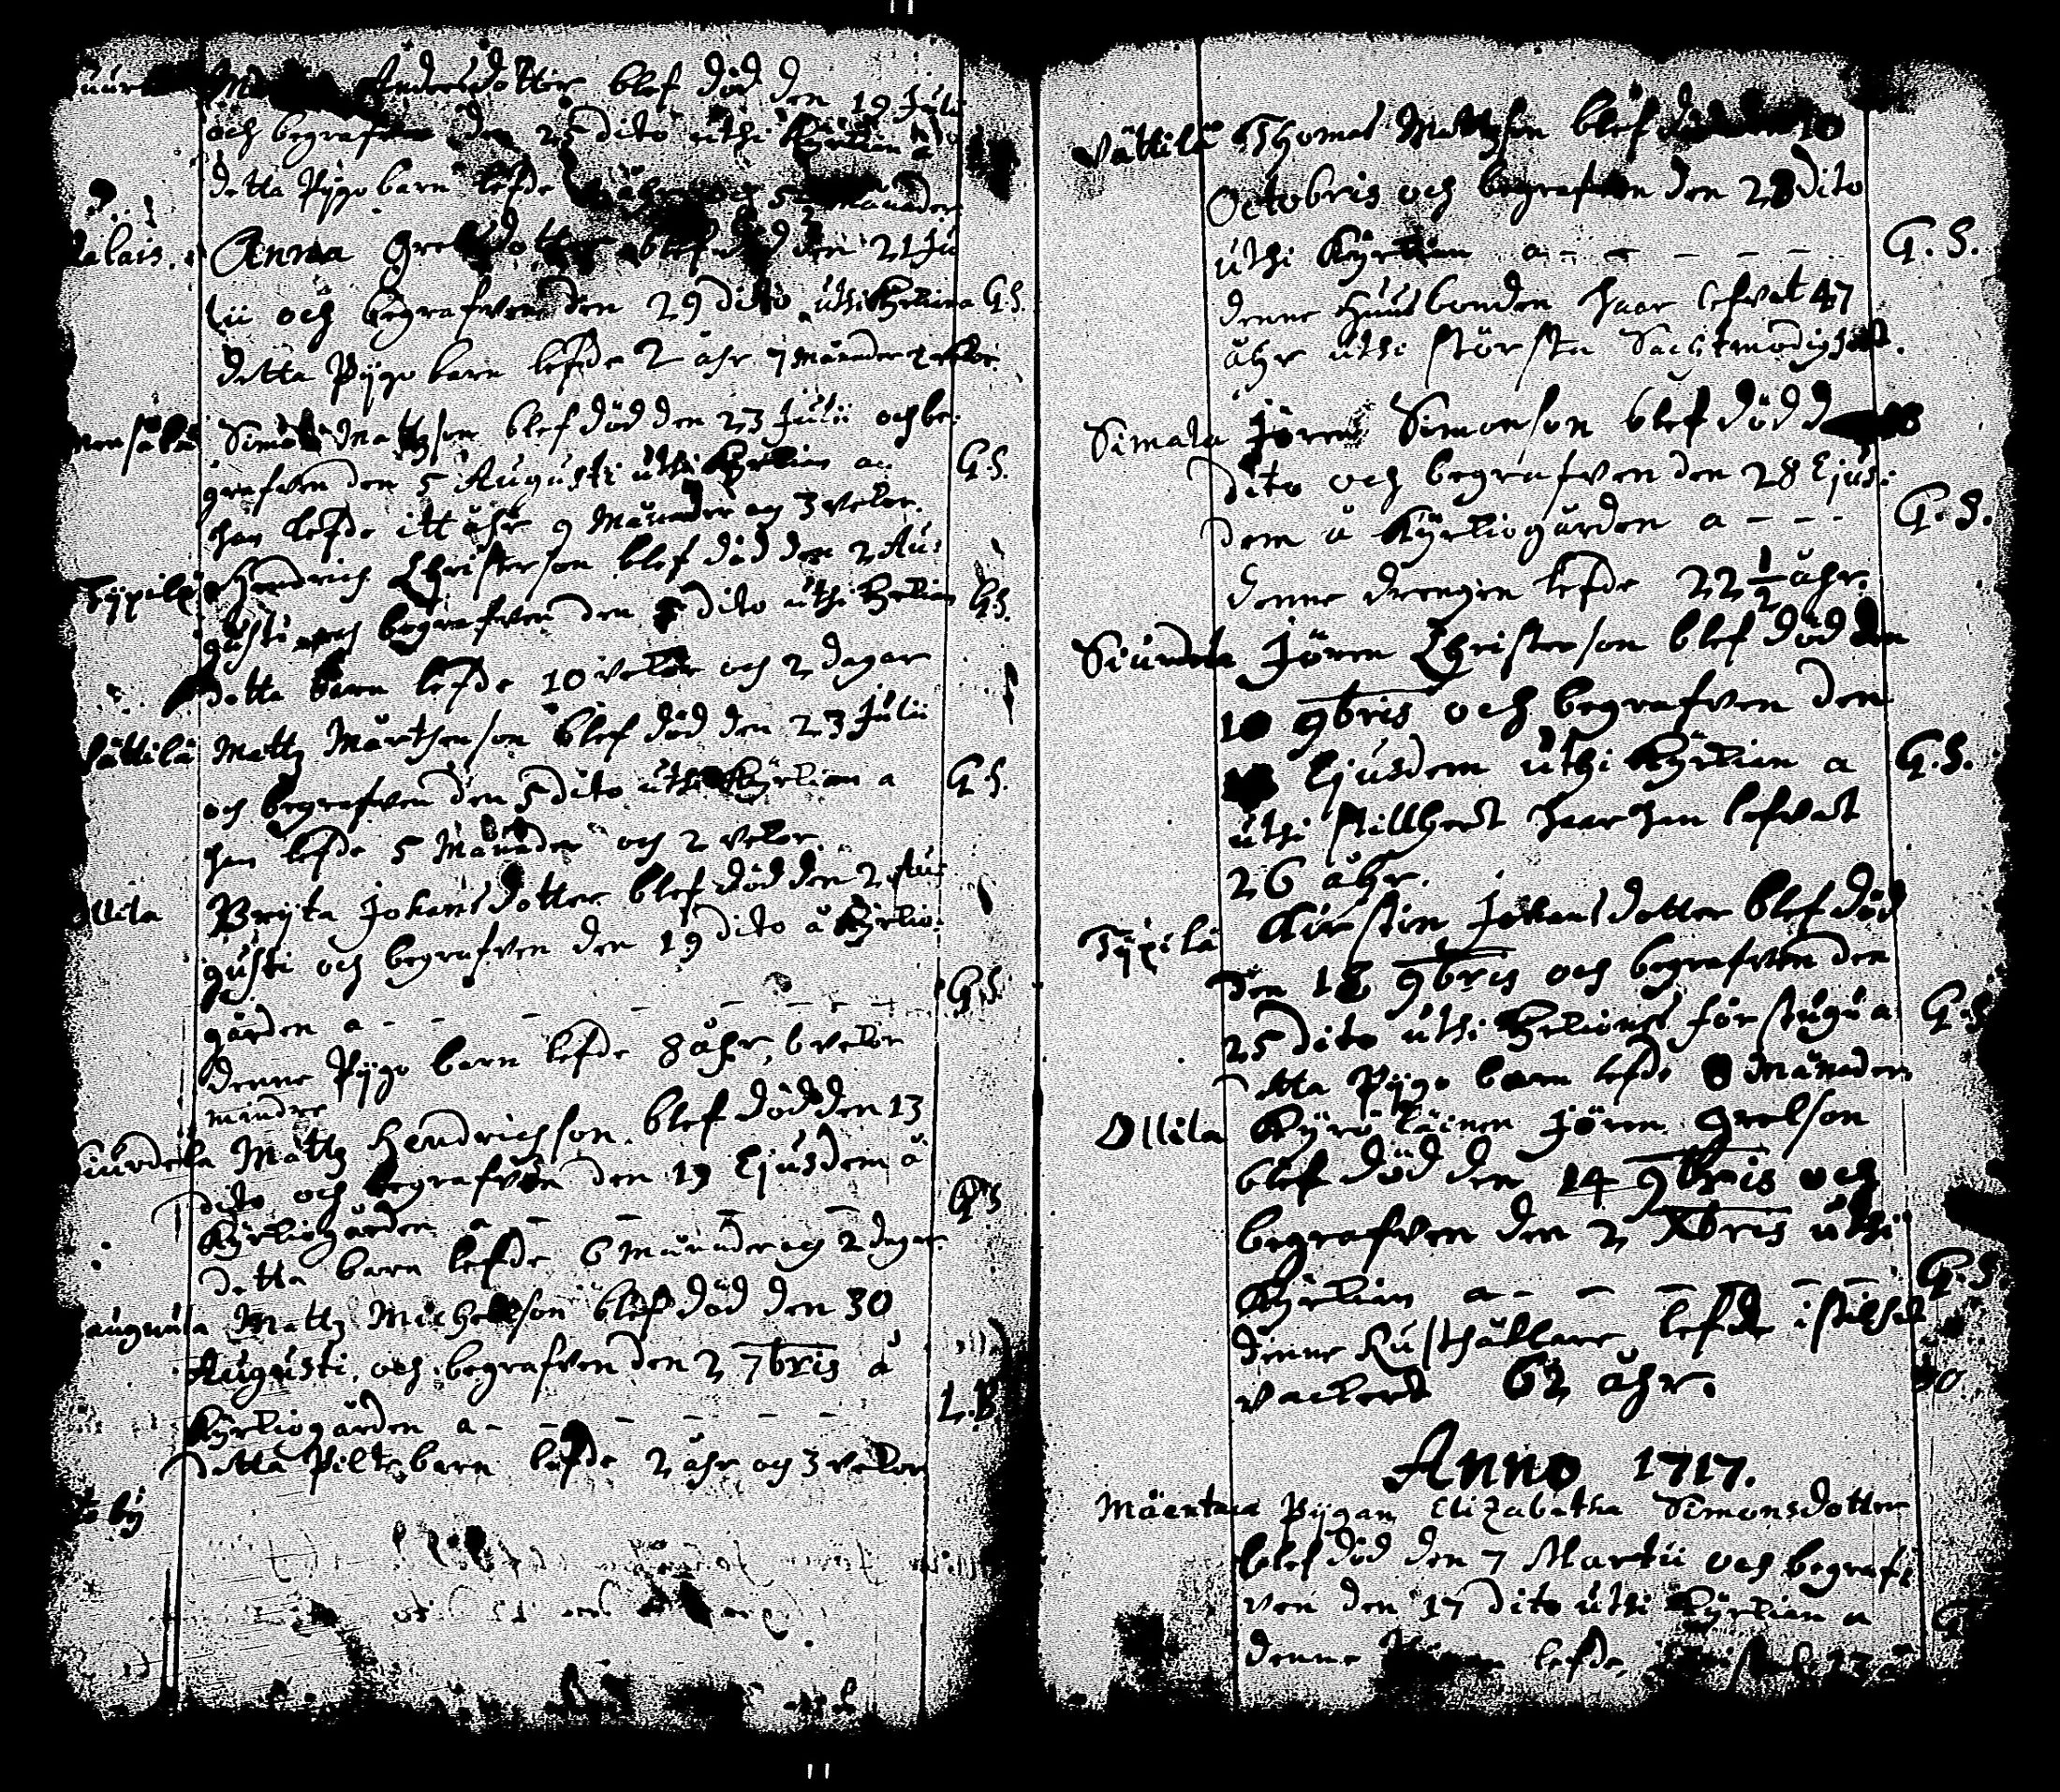 Andersdotter blef död den 19 Julii
och begrafven den 25 dito uthi Kyrkian a
detta Pygo barn lefde och 5 månader
Anna Grelsdotter blef död den 21 Ju
lii och begrafven den 29 dito uthi Kyrkian a G.S.
detta Pygo barn lefde 2 åhr 7 månader 2 vekor.
Simon Mattzson blef död den 23 Julii och be-
grafven den 5 Augusti uthi Kyrkian a G.S.
han lefde itt åhr 9 Månader och 3 vekor.
Typilä Hendrich Christerson blef död den 2 Au-
gusti och begrafven den 5 dito uthi Kyrkian G.S.
detta barn lefde 10 vekor och 2 dagar
Vättilä Mattz Mårthenson blef död den 23 Julii
och begrafven den 5 dito uthi Kyrkian a G.S.
han lefde 5 Månader och 2 vekor.
Ollila Bryta Johansdotter blef död den 2 Au-
gusti och begrafven den 19 dito å Kyrkio-
gården a - - - - - - - G.S.
denne Pygo barn lefde 8 åhr, 6 vekor
mindre
Siurdela Mattz Hendrichson blef död den 13
dito och begrafven den 19 Ejusdem å
Kyrkiogården a - - - - G.S.
detta barn lefde 6 månader och 2 dagar.
Mattz Michelson blef död den 30
Augusti, och begrafven den 2 7bris å
Kyrkiogården a - - - - - - L.B
detta Pilte barn lefde 2 åhr och 3 vekor
by
Vättilä Thomas Mattzson blef död den 10
Octobris och begrafven den 28 dito
uthi Kyrkian a - - - - - - G.S.
denne Huusbonden haar lefvat 47
åhr uthi största Sachtmodighet.
Simala Jören Simonson blef död d 18
dito och begrafven den 28 Ejus-
dem å Kyrkiogården a - - - G.S.
denne drengen lefde 22 1/2 åhr.
Siurdela Jören Christerson blef död den
10 9bris och begrafven den
Ejusdem uthi Kyrkian a G.S.
uthi stillhedt haar han lefvat
26 åhr.
Typilä Kirstin Johansdotter blef död
den 12 9bris och begrafven den
25 dito uthi Kyrkions förstugu a G.S.
detta Pygo barn lefde 8 Månader
Ollila Kyrö läinen Jören Grelson
blef död den 14 9bris och
begrafven den 2 Xbris uthi
Kyrkian a - - - - - - G.S.
denne Rusthållare lefde i stilhet
vackert 62 åhr.
Anno 1717.
Mäentaca Pygan Elizabetha Simonsdotter
blef död den 7 Martii och begraf-
ven den 17 dito uthi Kyrkian a G
denne lefde